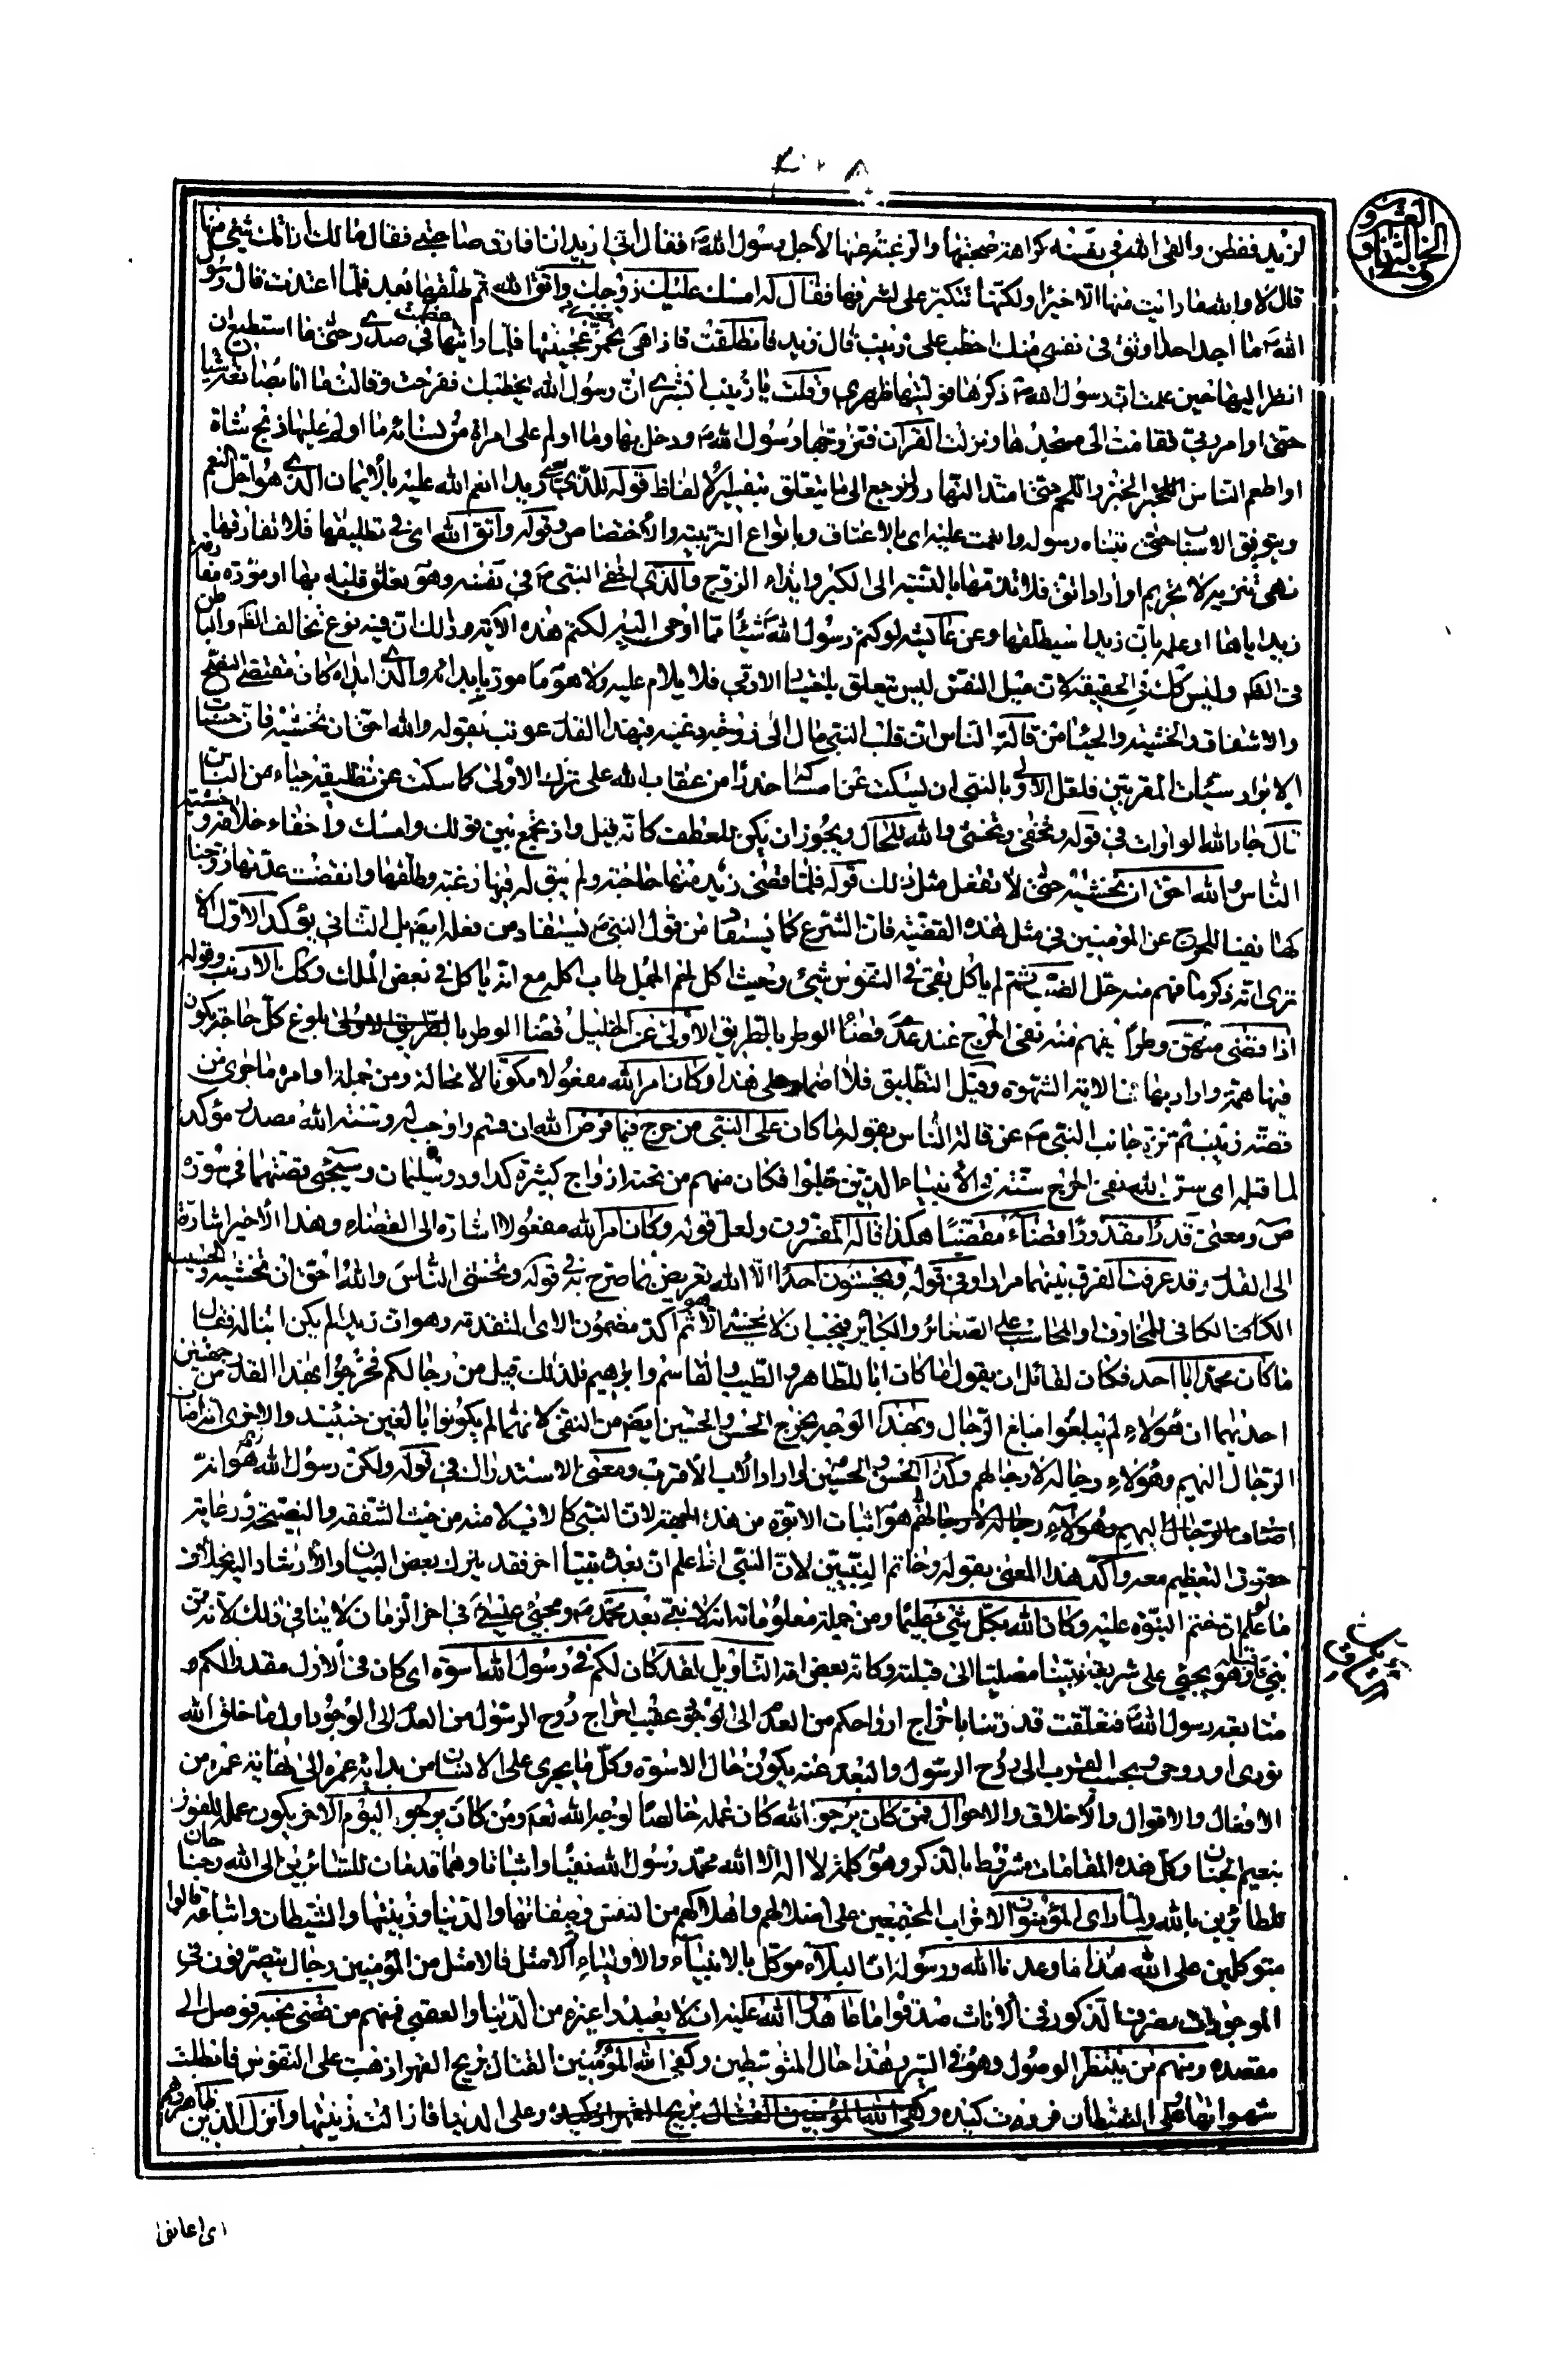 ٢٠٨
الجزء الثانى و العشرون
لزيد ففطن والقى الله فى نفسه كراهة صحبتها والرغبة عنها لأجل رسول الله فقال انى اريد ان افارق صاحبتى فقال مالك ارابك شىء منها
قال لا والله ما رايت منها الا خيرا ولكنها تتكبر على لشرفها فقال له امسك عليك زوجك واتق الله ثم طلقها بعد فلما اعتدت قال رسول
الله ما اجد احدا اوثق فى نفسى منك اخطب على زينب قال زيد فانطلقت فاذا هى تخمر عجينتها فلما رايتها عظمت فى صدرى حتى ما استطيع ان
انظر اليها حين علمت ان رسول الله ذكرها فوليتها ظهرى وقلت يا زينب ابشرى ان رسول الله يخطبك ففرحت وقالت ما انا بصانعة شيئا
حتى اوامر ربى فقامت الى مسجدها ونزلت القرآن فتزوجها رسول الله ودخل بها وما اولم على امراة من نسائه ما اولم عليها ذبح شاة
واطعم الناس الخبز واللحم حتى امتد النهار ولنرجع الى ما يتعلق بتفسير الالفاظ قوله للذى يعنى زيدا انعم الله عليه بالايمان الذى هو اجل النعم
وبتوفيق الاسباب حتى تبناه رسوله وانعمت عليه اى بالاعتاق وبانواع التربية والاختصاص وقوله واتق الله اى فى تطليقها فلا تفارقها
نهى تنزيه لا تحريم او اراد اتق فلا تذمها بالنسبة الى الكبر وايذاء الزوج والذى اخفى النبى فى نفسه وهو تعلق قلبه بها او مودة مفارقة
زيد اياها او علمه بان زيدا سيطلقها وعن عائشة لو كتم رسول الله شيئا مما اوحى اليه لكتم هذه الآية وذلك ان فيه نوع تخالف الظاهر والباطن
فى الظاهر وليس كذلك فى الحقيقة لان ميل النفس ليس يتعلق باختيار الادمى فلا يلام عليه ولا هو مامور بابدائه والذى ابداه كان مقتضى النصح
والاشفاق والخشية والحياء من قالة الناس ان قلب النبى مال الى زوجة دعيه فبهذا القدر عوتب بقوله والله احق ان تخشيه فان حسنات
الابرار سيئات المقربين فلعل الاولى بالنبى ان يسكت عن امساكه حذرا من عقاب الله على ترك الاولى كما سكت عن تطليقه حياء من الناس
قال جار الله الواوات فى قوله وتخفى وتخشى والله للحال ويجوز ان يكون للعطف كانه قيل واذ تجمع بين قولك وامسك واخفاء خلافه وخشية
الناس والله احق ان تخشيه حتى لا تفعل مثل ذلك قوله فلما قضى زيد منها حاجته ولم يبق له فيها رغبة وطلقها وانقضت عدتها زوجنا
كها نفيا للحرج عن المؤمنين فى مثل هذه القضية فان الشرع كما يستفاد من قول النبى يستفاد من فعله ايضا بل الثانى يؤكد الاول الا
ترى انه ذكر ما فهم منه حل الضب ثم لم ياكل بقى فى النفوس شىء وحيث اكل لحم الجمل طاب اكله مع انه لا يؤكل فى بعض الملل وكذلك الارنب وقوله
اذا قضى منهن وطرا يفهم منه نفى الحرج عند عدم قضاء الوطر بالطريق الاولى عن الخليل قضاء الوطر بلوغ كل حاجة يكون
فيها همة واراد بها ههنا الشهوة وقيل التطليق فلا اضمار على هذا وكان امر الله مفعولا مكونا لا محالة ومن جملة اوامره ما جرى من
قصة زينب ثم نزه جانب النبى عن قالة الناس بقوله ما كان على النبى من حرج فيما فرض الله اى قسم واوجب له وسنة الله مصدر مؤكد
لما قبله اى سن الله نفى الحرج سنته فى الانبياء الذين خلوا فكان منهم من تحته ازواج كثيرة كداود وسليمان وسيجىء قصتهما فى سورة
ص ومعنى قدرا مقدورا قضاء مقضيا هكذا قاله المفسرون ولعل قوله وكان امر الله مفعولا اشارة الى القضاء وهذا الاخير اشارة
الى القدر وقد عرفت الفرق بينهما مرارا وفى قوله ويخشون احدا الا الله تعريض بما صرح به فى قوله وتخشى الناس والله احق ان تخشيه والحسيب
الكافى للمخاوف والمحاسب على الصغائر والكبائر فيجب ان لا يخشى الا هو ثم اكد مضمون الاى المتقدمة وهو ان زيدا لم يكن ابنا له فقال
ما كان محمد ابا احد فكان لقائل ان يقول اما كان ابا للطاهر والطيب والقاسم وابراهيم فلذلك قيل من رجالكم فخرجوا بهذا القدر من جهتين
احديهما ان هؤلاء لم يبلغوا مبلغ الرجال وبهذا الوجه يخرج الحسن والحسين ايضا من النفى لانهما لم يكونا بالغين حينئذ والاخرى انه اضاف
الرجال اليهم وهؤلاء رجاله لا رجالهم وكذا الحسن والحسين لو اراد الاب الاقرب ومعنى الاستدراك فى قوله ولكن رسول الله هو انه
هو اثبات الابوة من هذه الجهة لان النبى كالاب لامته من حيث الشفقة والنصيحة ورعاية
حقوق التعظيم معه واكد هذا المعنى بقوله وخاتم النبيين لان النبى اذا علم ان بعده نبيا اخر فقد يترك بعض البيان والارشاد اليه بخلاف
ما لو علم ان ختم النبوة عليه وكان الله بكل شىء عليما ومن جملة معلوماته انه لا نبى بعد محمد ومجىء عيسى فى اخر الزمان لا ينافى ذلك لانه ممن
نبئ قبله وهو يجىء على شريعة نبينا مصليا الى قبلته وكانه بعض امته التاويل لقد كان لكم فى رسول الله اسوة اى كان فى الازل مقدرا لكم
متابعة رسول الله فتعلقت قدرتنا باخراج ارواحكم من العدم الى الوجود عقيب اخراج روح الرسول من العدم الى الوجود اول ما خلق الله
نورى او روحى وبحسب القرب الى روح الرسول والبعد عنه يكون حال الاسوة وكل ما يجرى على الانسان من بداية عمره الى نهاية عمره من
الافعال والاقوال والاخلاق والاحوال فمن كان يرجو الله كان عمله خالصا لوجه الله نعم ومن كان يرجو اليوم الآخر يكون عمله للفوز
بنعيم الجنان وكل هذه المقامات مشروط بالذكر وهو كلمة لا اله الا الله محمد رسول الله نفيا واثباتا وهما قدمان للسائرين الى الله وجناحان
للطائرين بالله ولما راى المؤمنون الاحزاب المجتمعين على اضلالهم واهلاكهم من النفس وصفاتها والدنيا وزينتها والشيطان واتباعه قالوا
متوكلين على الله هذا ما وعدنا الله ورسوله ان البلاء موكل بالانبياء والاولياء الامثل فالامثل من المؤمنين رجال يتصرفون فى
الموجودات تصرف الذكور فى الاناث صدقوا ما عاهدوا الله عليه ان لا يعبدوا غيره من الدنيا والعقبى فمنهم من قضى نحبه فوصل الى
مقصده ومنهم من ينتظر الوصول وهو فى السير وهذا حال المتوسطين وكفى الله المؤمنين القتال بريح القهر اذ هبت على النفوس فابطلت
شهواتها وعلى الشيطان فردت كيده وعلى الدنيا فازالت زينتها وانزل الذين ظاهروهم
اى اعانوا